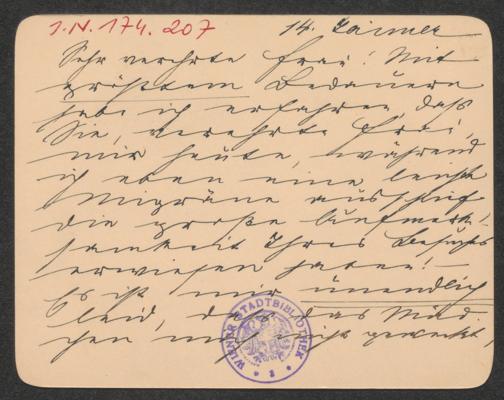 I.N. 174.207
14. Jänner
Sehr verehrte Frau! Mit
größtem Bedauern
habe ich erfahren, daß
Sie, verehrte Frau,
mir heute, während
ich eben eine leichte
Migräne ausschlief
die große Aufmerk-
samkeit Ihres Besuches
erwiesen haben!
Es ist mir unendlich
leid, daß das Mäd-
chen mich nicht geweckt,
WIENER STADTBIBLIOTHEK